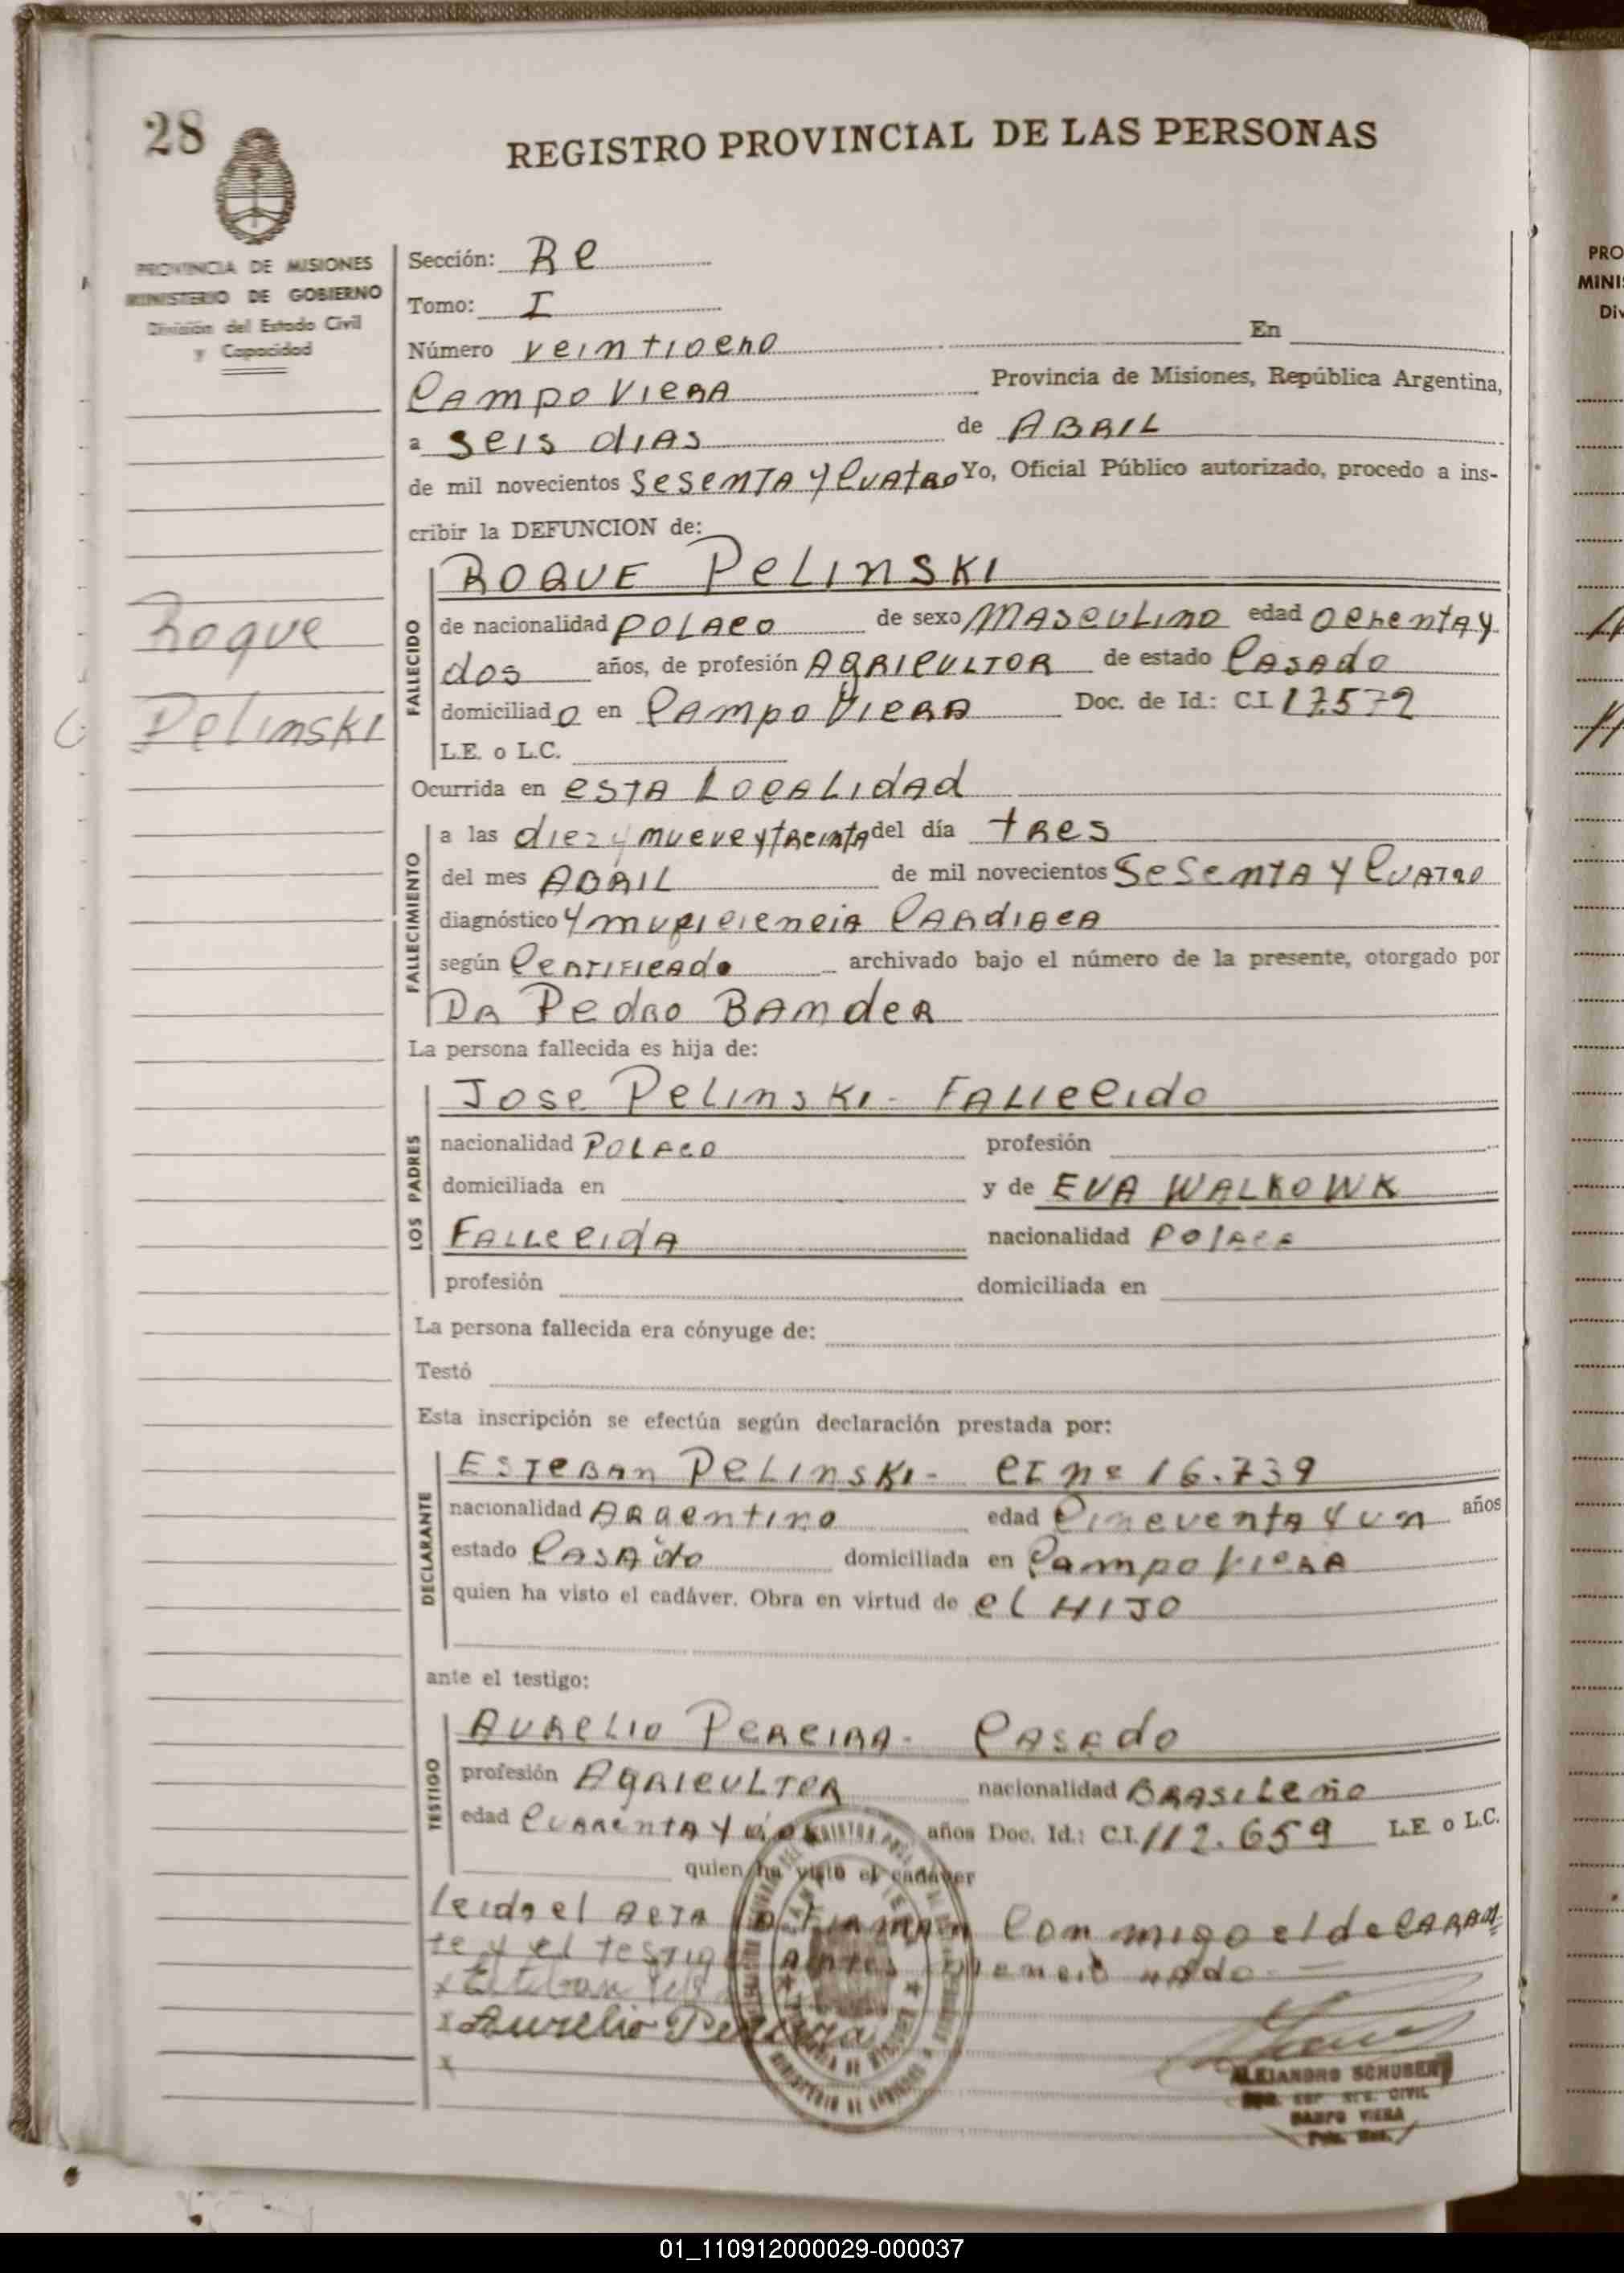 28
REGISTRO PROVINCIAL DE LAS PERSONAS
PROVINCIA DE MISIONES
MINISTERIO DE GOBIERNO
División del Estado Civil
y Capacidad
Sección: Re
Tomo: I
Número veintiocho En
Campo Viera Provincia de Misiones, República Argentina,
a seis dias de ABRIL
de mil novecientos sesenta y cuatro Yo, Oficial Público autorizado, procedo a ins-
cribir la DEFUNCION de:
ROQUE PELINSKI
Roque
Pelinski
FALLECIDO
de nacionalidad POLACO de sexo MASCULINO edad ochenta y
dos años, de profesión AGRICULTOR de estado Casado
domiciliado en Campo Viera Doc. de Id.: C.I. 17.572
L.E. o L.C.
Ocurrida en esta Localidad
FALLECIMIENTO
a las diez y nueve y treinta del día tres
del mes ABRIL de mil novecientos sesenta y cuatro
diagnóstico Ynnuficiencia Cardiaca
según Certificado archivado bajo el número de la presente, otorgado por
DR Pedro Bander
La persona fallecida es hija de:
LOS PADRES
Jose Pelinski - Fallecido
nacionalidad POLACO profesión
domiciliada en y de EVA WALKOWK
Fallecida nacionalidad Polaca
profesión domiciliada en
La persona fallecida era cónyuge de:
Testó
Esta inscripción se efectúa según declaración prestada por:
DECLARANTE
ESTEBAN PELINSKI - CI nº 16.739
nacionalidad Argentino edad cincuenta y un años
estado Casado domiciliada en Campo Viera
quien ha visto el cadáver. Obra en virtud de el HIJO
ante el testigo:
TESTIGO
AURELIO PEREIRA - Casado
profesión Agricultor nacionalidad Brasileño
edad cuarenta y años Doc. Id.: C.I. 112.659 L.E o L.C.
quien ha visto el cadáver
leido el acta firman conmigo el declaran
te y el testigo antes mencionado
x Esteban
x Aurelio Pereira
x
ALEJANDRO SCHUBERT
CIVIL
CAMPO VIERA
PRO
MINIS
Div
01_110912000029-000037